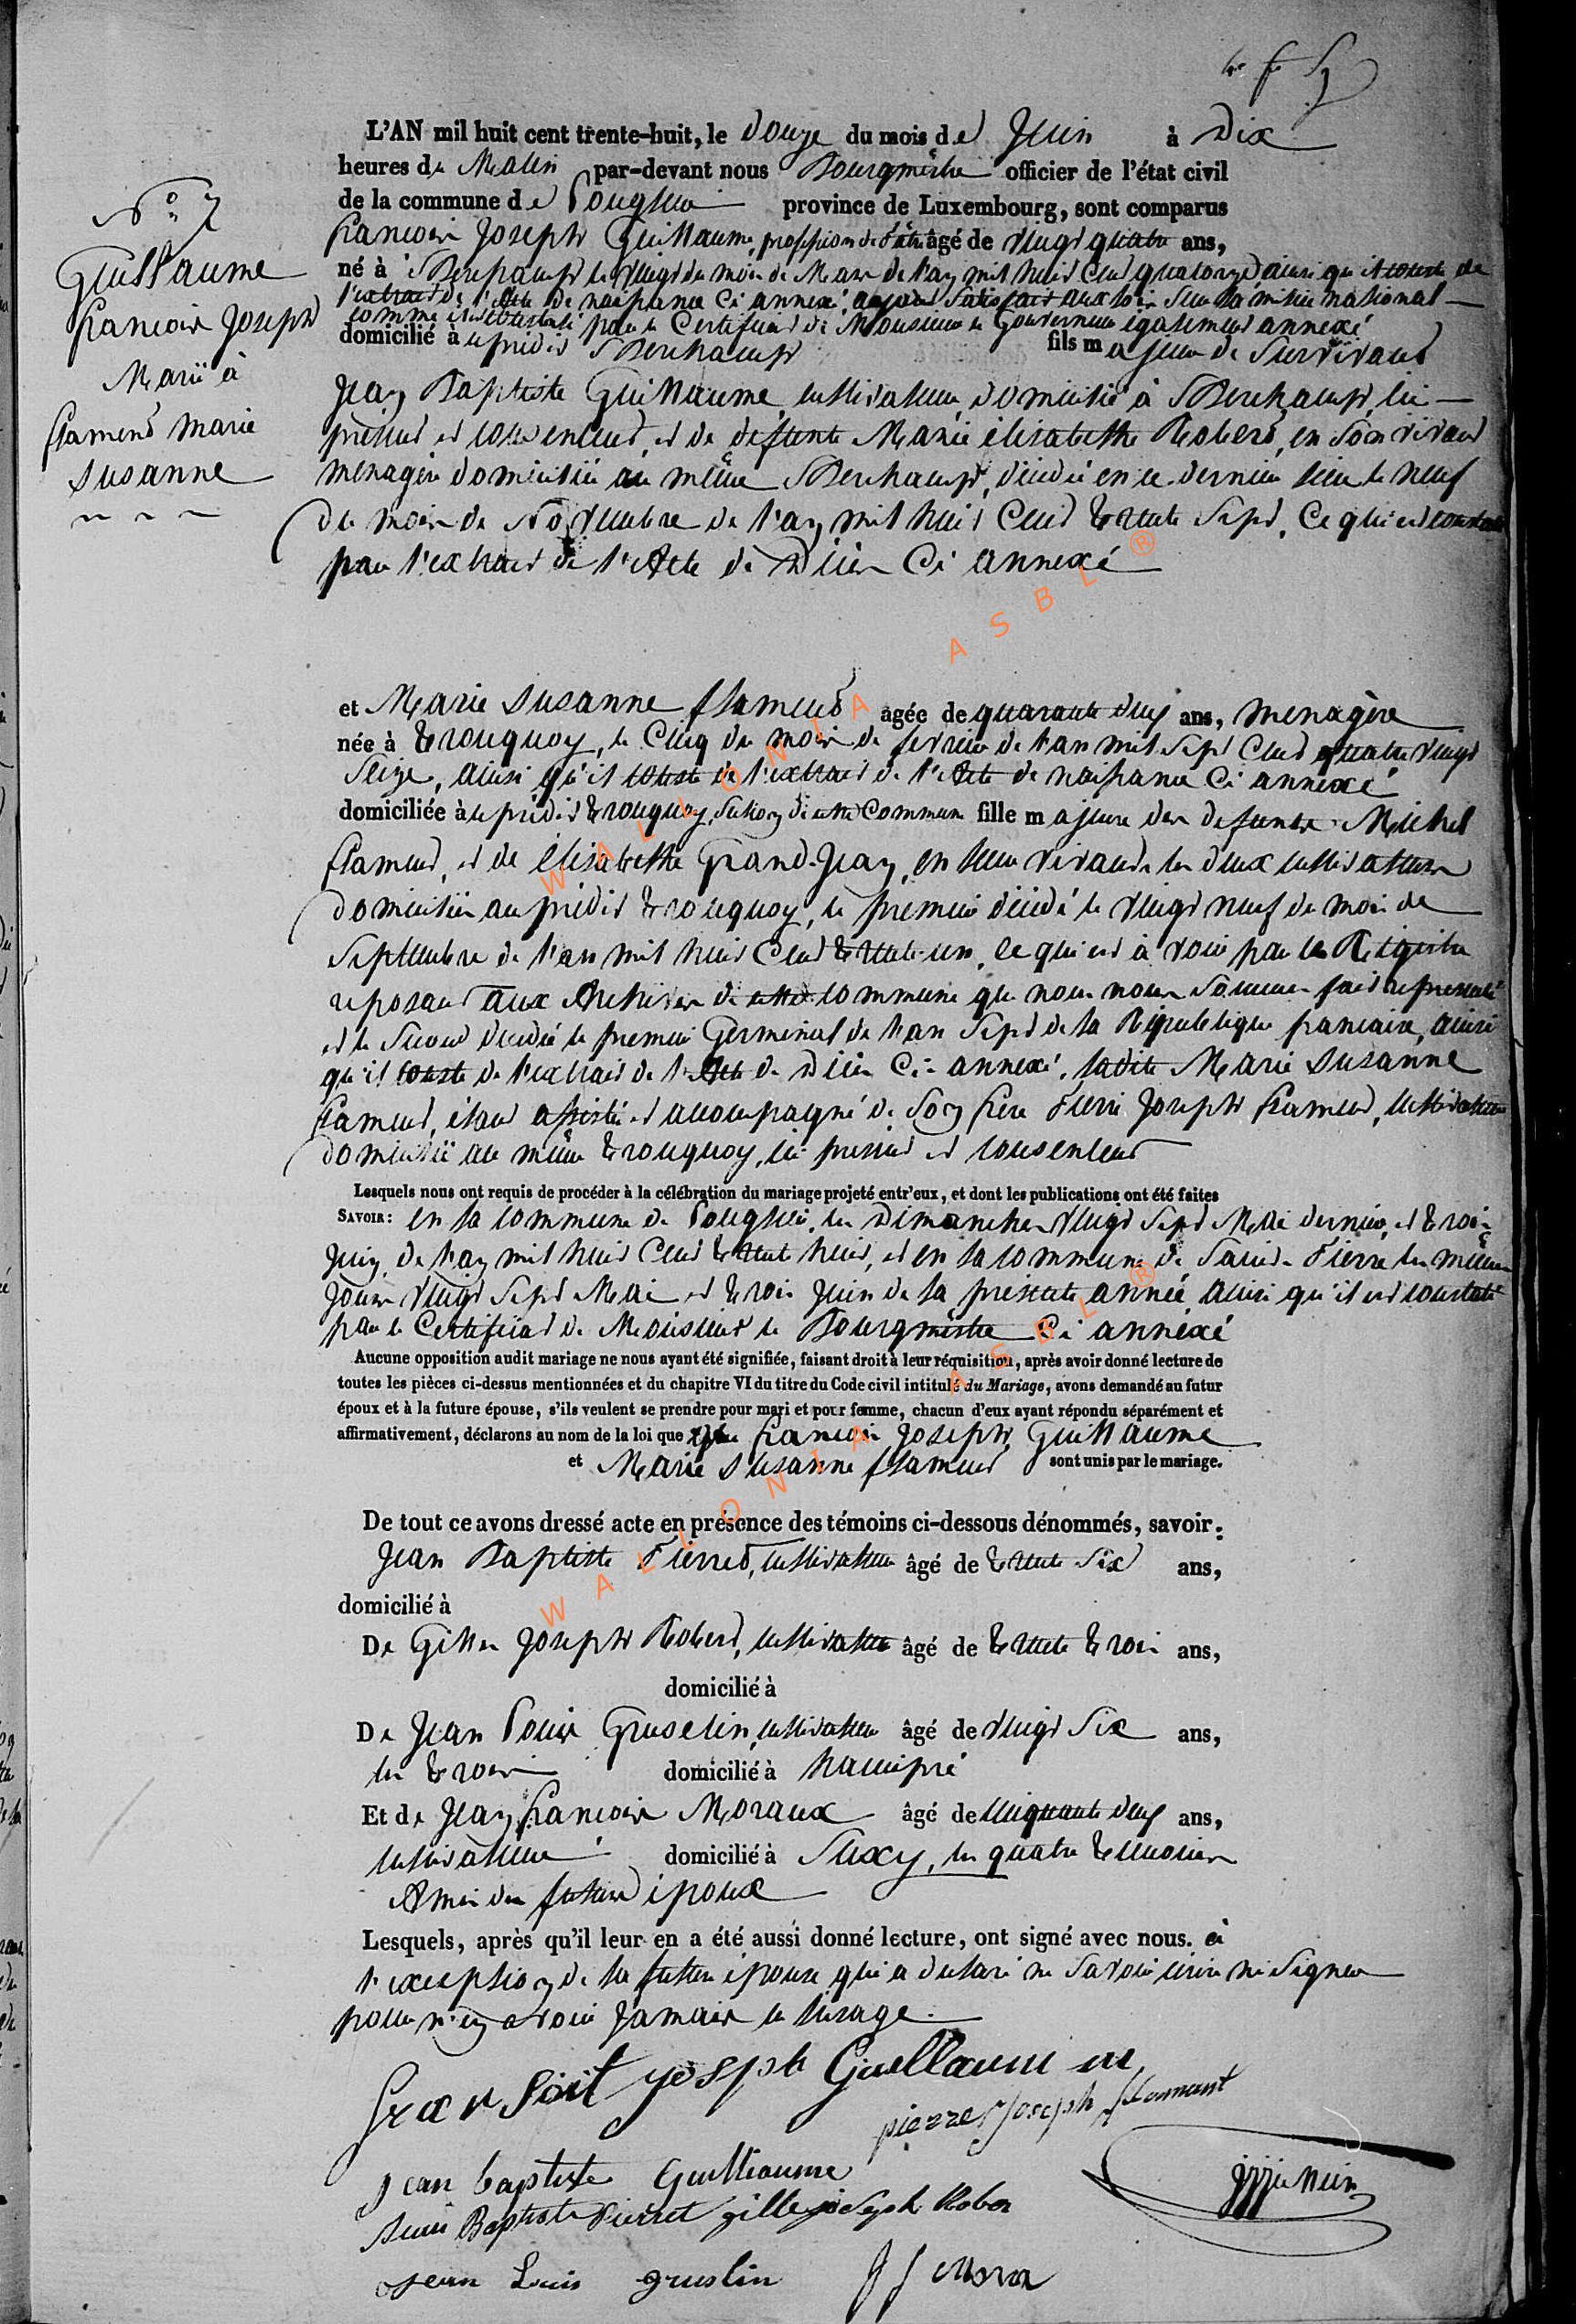 N° 7
Guillaume
francois Joseph
Marié à
flamend marie
susanne
L'AN mil huit cent trente-huit, le douze du mois de Juin à Dix
heures du Matin par-devant nous Bourgmèstre officier de l'état civil
de la commune de Louglier province de Luxembourg, sont comparus
francois Joseph Guillaume, profession de âgé de vingt quatre ans,
né à Berchamps le vingt du mois de Mars de l'an mil huit Cent quatorze, ainsi qu'il conste de
l'extrait de l'Acte de naissance Ci annexé, ayant satisfait aux lois sur la milice national
comme il est constaté par le Certificat de Monsieur le Gouverneur également annexé
domicilié à susdit Berchamps fils majeur de survivant
Jean Baptiste Guillaume, cultivateur, domicilié à Berchamps, ici
présent et consentent, et de defunte Marie élisabethe Robert, en son vivant
menagère domiciliée au même Berchamps, décédée en ce dernier lieu le neuf
du mois de Novembre de l'an mil huit Cent trente sept, Ce qui est constaté
par l'extrait de l'Acte de Décès Ci annexé
et Marie susanne flamend agée de quarante deux ans, menagère
née à tronquoy, le Cinq du mois de fevrier de l'an mil sept Cent quatre vingt
seize, ainsi qu'il conste de l'extrait de l'Acte de naissance Ci annexé
domiciliée à prédit tronquoy, section de cette Commune fille majeure des defunts Michel
flamend, et de élisabethe Grand-Jean, en leur vivant les deux cultivateurs
domiciliés au prédit tronquoy, le premier décédé le vingt neuf du mois de
septembre de l'an mil huit Cent trente-un, ce qui est à voir par les Registre
reposant aux Archives de cette commune que nous nous sommes fait représenté
et la seconde décédée le premier Germinal de l'an sept de la République francaise, ainsi
qu'il conste de l'extrait de l'Acte de Décès Ci-annexé, ladite Marie susanne
flamend, étant assistée et accompagné de son frère Pierre Joseph flamend, cultivateur
domicilié au même tronquoy, ici present et consentent
Lesquels nous ont requis de procéder à la célébration du mariage projeté entr'eux, et dont les publications ont été faites
SAVOIR: en la commune de Louglier, les Dimanches vingt sept Mai dernier, et trois
Juin de l'an mil huit Cent trente huit, et en la commune de Saint-Pierre les mêmes
Jours vingt sept Mai et trois Juin de la présente année, ainsi qu'il est constaté
par le Certificat de Monsieur le Bourgmèstre Ci annexé
Aucune opposition audit mariage ne nous ayant été signifiée, faisant droit à leur réquisition, après avoir donné lecture de
toutes les pièces ci-dessus mentionnées et du chapitre VI du titre du Code civil intitulé du Mariage, avons demandé au futur
époux et à la future épouse, s'ils veulent se prendre pour mari et pour femme, chacun d'eux ayant répondu séparément et
affirmativement, déclarons au nom de la loi que francois Joseph Guillaume
et Marie susanne flamend sont unis par le mariage.
De tout ce avons dressé acte en présence des témoins ci-dessous dénommés, savoir:
Jean Baptiste Pierret, cultivateur âgé de trente six ans,
domicilié à
De Gilles Joseph Robert, cultivateur âgé de trente trois ans,
domicilié à
De Jean Louis Gruselin, cultivateur âgé de vingt six ans,
les trois domicilié à hamipré
Et de Jean francois Moraux âgé de cinquante deux ans,
cultivateur domicilié à Suxy, les quatre temoins
Amis des futurs époux
Lesquels, après qu'il leur en a été aussi donné lecture, ont signé avec nous. à
l'exception de la future épouse qui a declaré ne savoir écrire ni signer
pour n'en avoir Jamais eu l'usage.
fransoit joseph Guillaume
pierre Joseph flamant
jean baptiste Guilliaume
Jean Baptiste Pierret gille joseph Rober
Jean Louis gruslin J f Mora
WALLONIA ASBL ®
WALLONIA ASBL ®